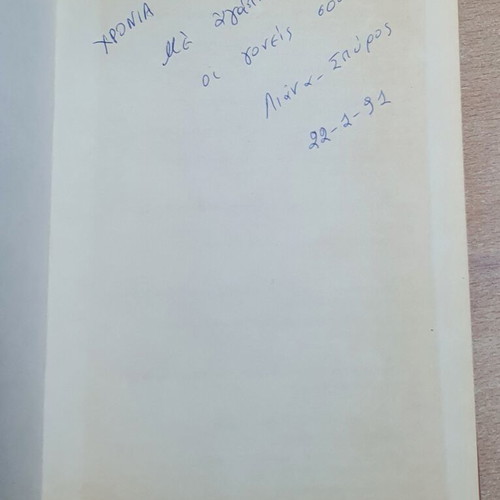 ΧΡΟΝΙΑ
Με αγάπη
οι γονείς σου
Λιάνα - Σπύρος
22-1-91